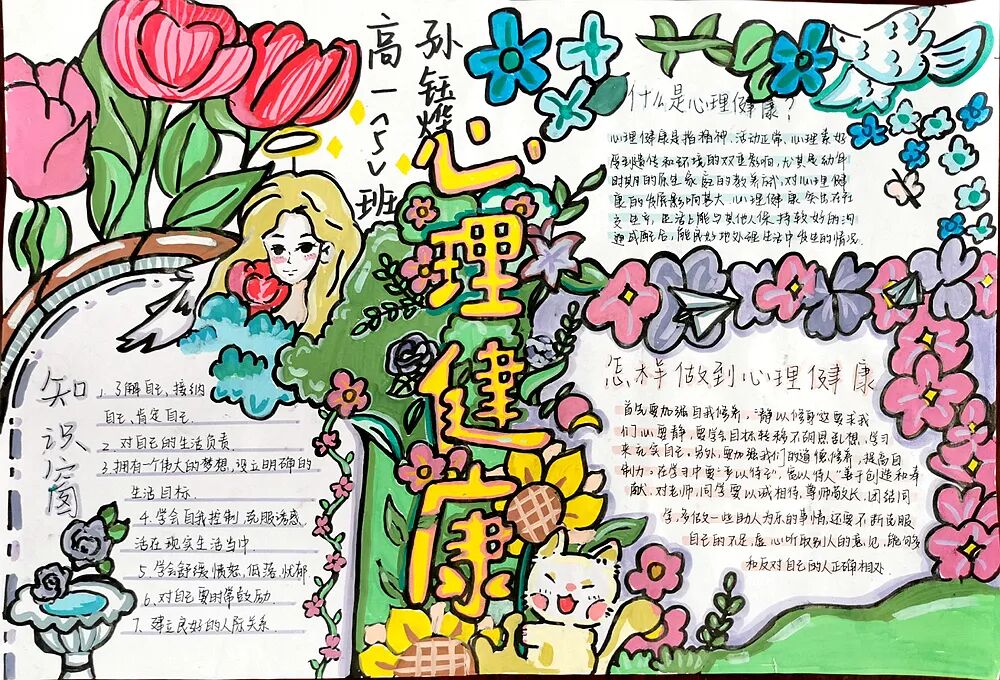 孙钰烨
高一(5)班
心理健康
什么是心理健康?
心理健康是指精神、活动正常、心理素好
受到遗传和环境的双重影响,尤其是幼年
时期的原生家庭的教养方式,对心理健
康的发展影响甚大,心理健康突出在社
交、生产、生活上能与其他人保持较好的沟
通或配合,能良好地处理生活中发生的情况.
知识窗
1、了解自己,接纳
自己,肯定自己.
2、对自己的生活负责
3、拥有一个伟大的梦想,设立明确的
生活目标.
4、学会自我控制,克服诱惑
活在现实生活当中.
5、学会舒缓愤怒,低落,忧郁
6、对自己要时常鼓励.
7、建立良好的人际关系.
怎样做到心理健康
首先要加强自我修养,"静以修身"这要求我
们心要静,要学会目标转移不胡思乱想,学习
来充实自己,另外,要加强我们的道德修养,提高自
制力,在学习中要"严以待己",宽以待人"善于创造和奉
献、对老师,同学要以诚相待,尊师敬长,团结同
学,多做一些助人为乐的事情,还要不断克服
自己的不足,虚心听取别人的意见,能够
和反对自己的人正确相处.